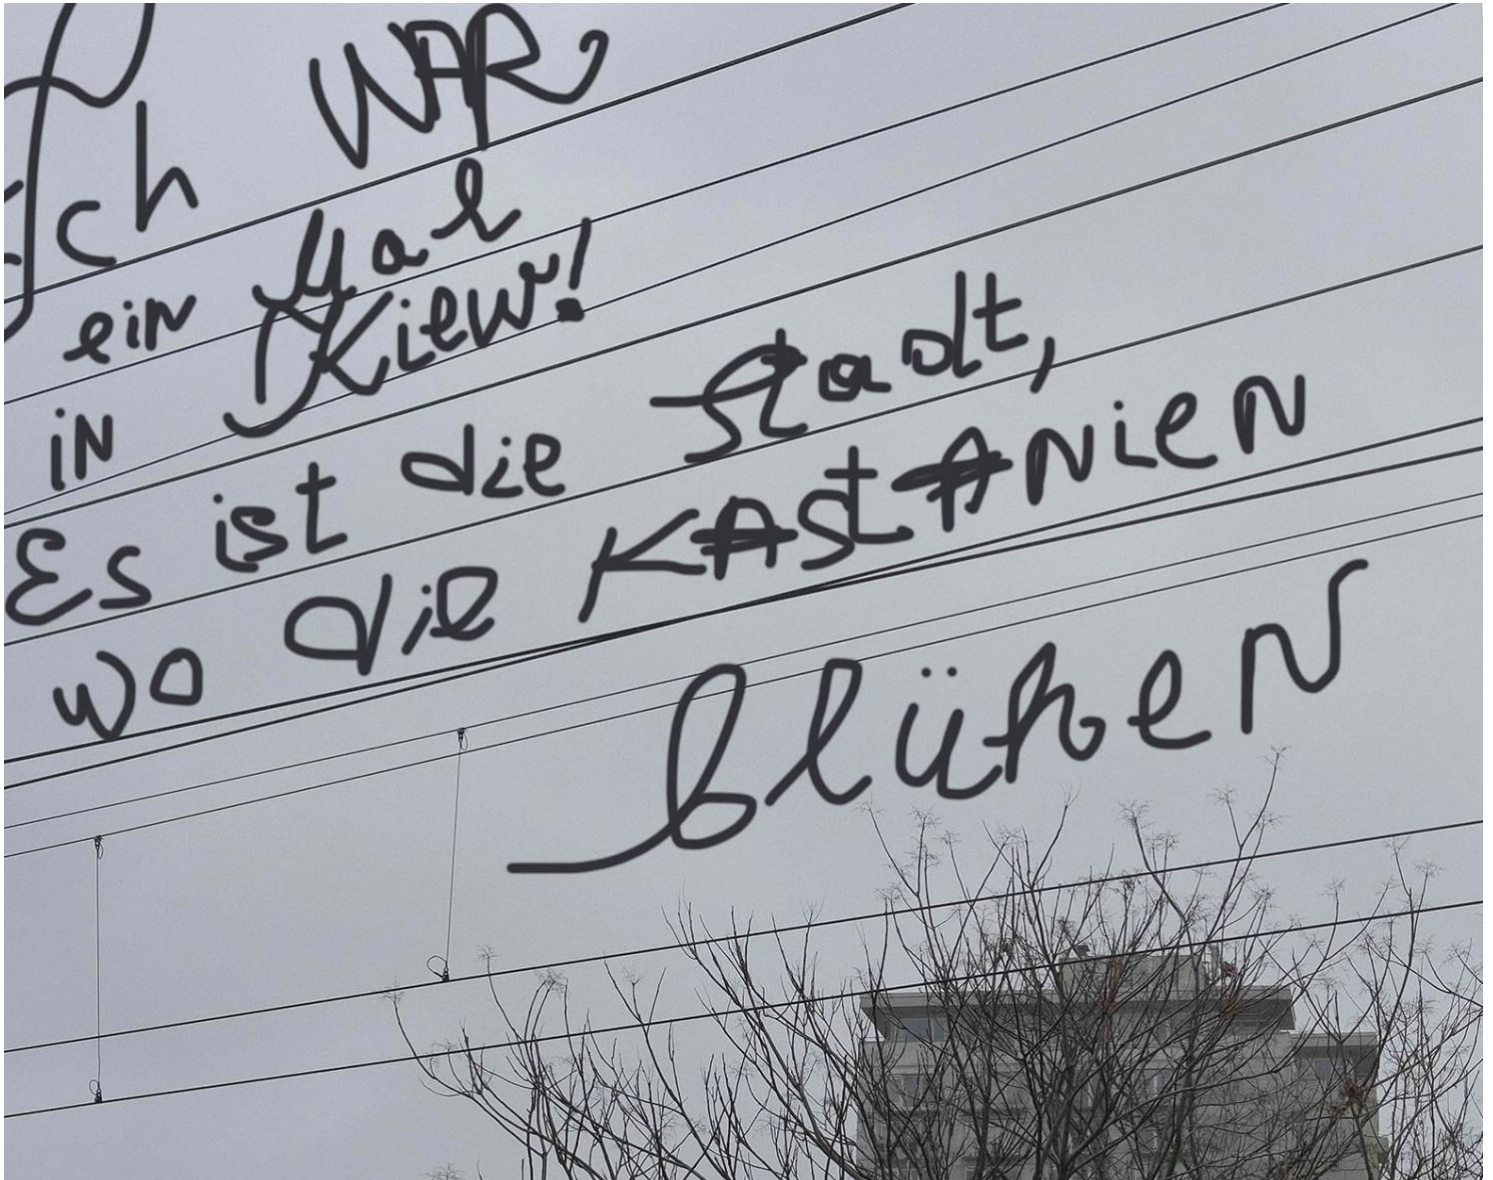 Ich WAR
ein Mal
in Kiew!
Es ist die Stadt,
wo die KAStANieN
blühen